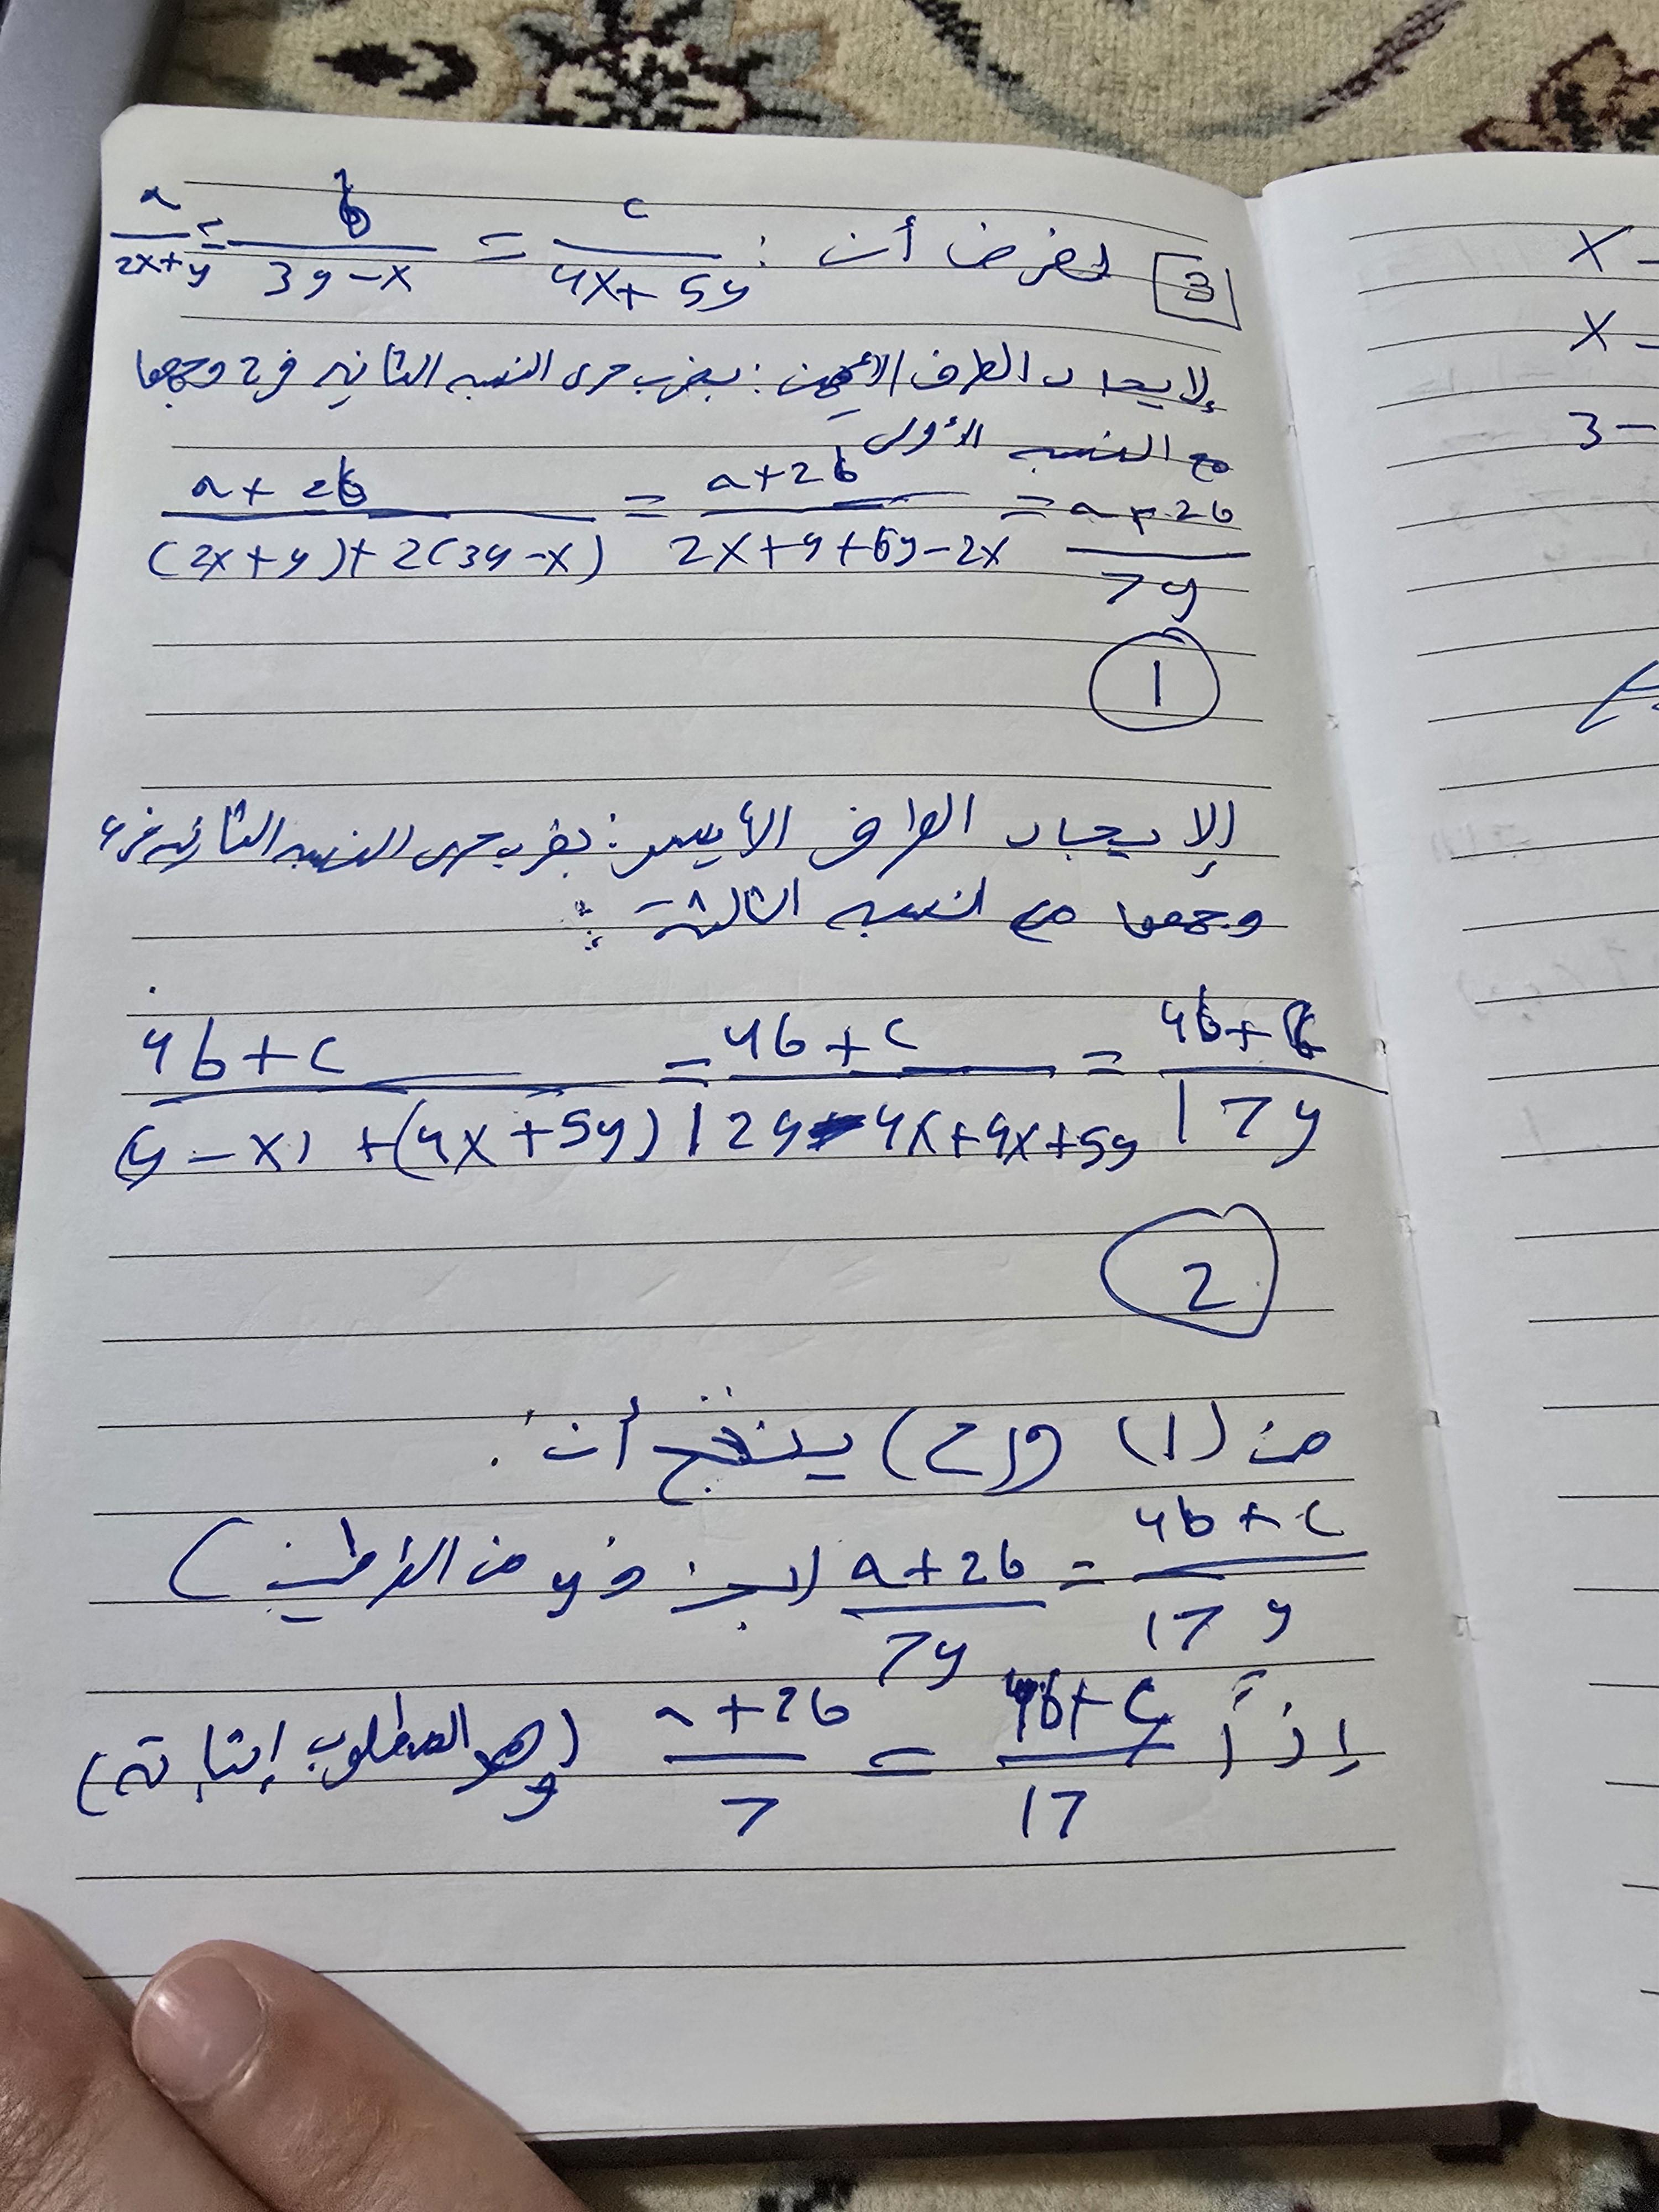 3 لفرض أن : a/(2x+y) = b/(3y-x) = c/(4x+5y)
لإيجاد الطرف الأيمن : بضرب حدى النسبه الثانيه في 2 وجمعها
مع النسبه الأولى
(a+2b)/((2x+y)+2(3y-x)) = (a+2b)/(2x+y+6y-2x) = (a+2b)/(7y)
1
لإيجاد الطرف الأيسر : بضرب حدى النسبه الثانيه في 4
وجمعها مع النسبه الثالثة :
(4b+c)/((y-x) +(4x+5y)) = (4b+c)/(12y-4x+4x+5y) = (4b+c)/(17y)
2
من (1) و(2) ينتج أن :
(4b+c)/(17y) = (a+2b)/(7y) ( y من الطرفين )
إذاً (4b+c)/17 = (a+2b)/7 (وهو المطلوب إثباته)
x-
x-
3-